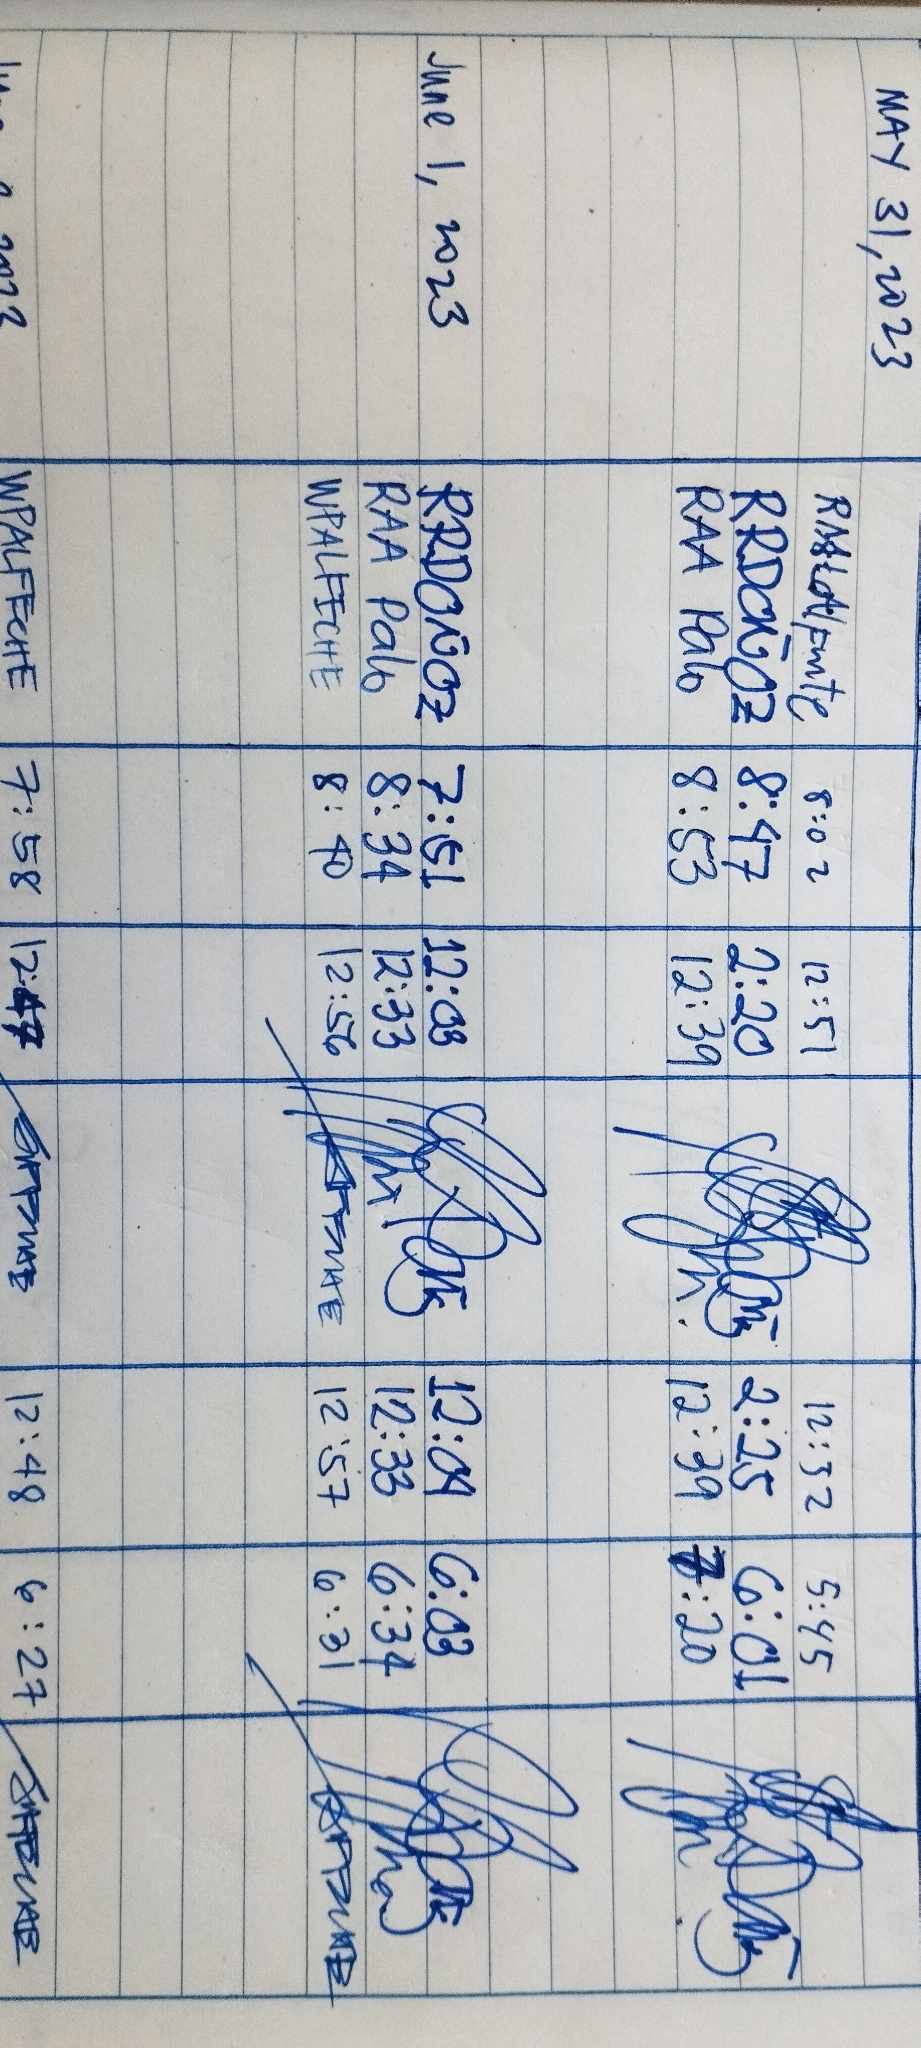 MAY 31, 2023
8:02 12:51 12:52 5:45
RRDOÑOZ 8:47 2:20 2:25 6:01
RAA Palo 8:53 12:39 12:39 7:20
June 1, 2023 RRDOÑOZ 7:51 12:03 12:04 6:03
RAA Palo 8:34 12:33 12:33 6:34
WPALFECHE 8:40 12:56 12:57 6:31
2023 WPALFECHE 7:58 12:47 12:48 6:27